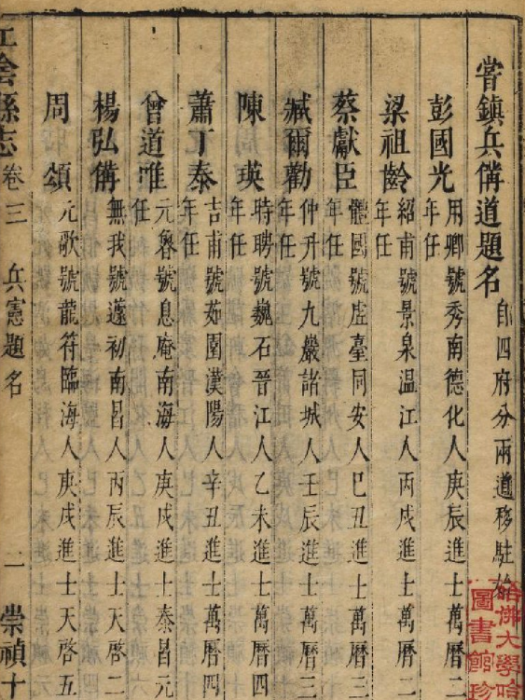 常鎮兵備道題名 自四府分兩道移駐始
彭國光 用卿號秀南德化人庚辰進士萬曆二
年任
梁祖齡 紹甫號景泉温江人丙戌進士萬曆二
年任
蔡獻臣 體國號虛臺同安人己丑進士萬曆三
年任
臧爾勸 仲升號九巖諸城人壬辰進士萬曆三
年任
陳 瑛 時聘號巍石晉江人乙未進士萬曆四
年任
蕭丁泰 吉甫號茹園漢陽人辛丑進士萬曆四
年任
曾道唯 元魯號息庵南海人庚戌進士泰昌元
任
楊弘備 無我號蘧初南昌人丙辰進士天啓二
周 頌 元歌號龍符臨海人庚戌進士天啓五
江陰縣志 卷三 兵憲題名 一 崇禎十
哈佛大學哈
圖書館珍